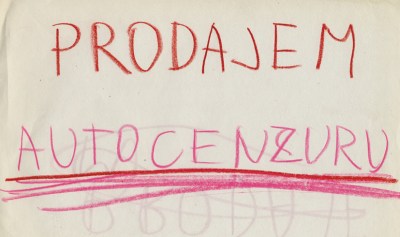 PRODAJEM
AUTOCENZURU